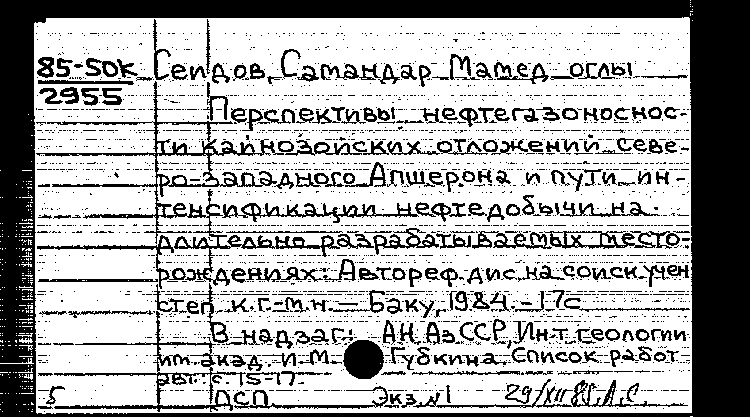 85-50к Сеидов, Самандар Мамед оглы
2955
Перспективы нефтегазоноснос-
ти кайнозойских отложений севе-
ро-западного Апшерона и пути ин-
тенсификации нефтедобычи на
длительно разрабатываемых место-
рождениях: Автореф. дис на соиск учен
степ к.г.-м.н. — Баку, 1984. - 17с
В надзаг: АН АзССР, Ин-т геологии
им. акад. И.М. Губкина, Список работ
авт: с. 15-17.
5 ДСП Экз. №1 29/XII 85. А.С.